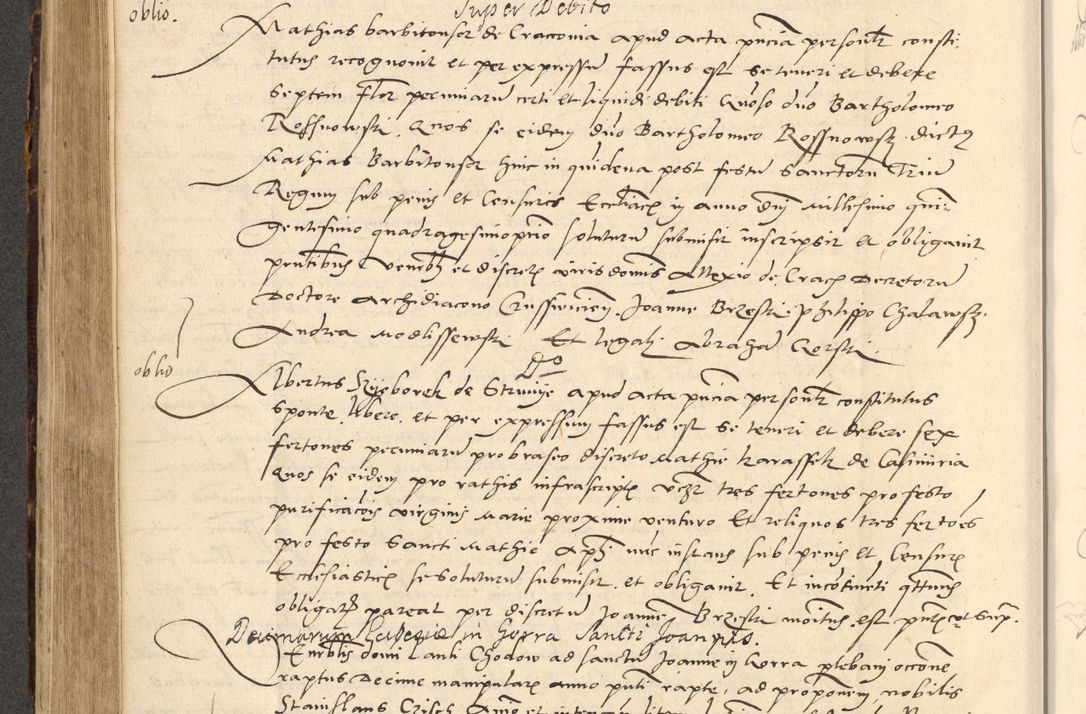 oblio. Super Debito
Mathias barbitonsor de Cracovia apud acta pñcia personlr consti-
tutus recognovit et per expressum fassus est se teneri et debere
septem flor pecuniarum certi et liquidi debiti Gnoso dno Bartholomeo
Rossnowski. Quos se eidem dno Bartholomeo Rossnowsk dictus
Mathias Barbitonsor hinc in quidena post festum sanctorum Trium
Regum sub penis et Censuris Eccliacis in anno dni Millesimo quin-
gentesimo quadragesimoprimo soluturum submisit inscripsit et obligavit
pntibus Venerbl et discretis viris dominis Alexio de Crac Decretorum
Doctore Archidiacono Crussvicien. Joanne Brzeski. Philippo Chalawsk.
Andrea Modlissewski Et legali Abraham Gorski.
oblio Do
Albertus de apud acta pñcia personlr constitutus
sponte, libere, et per expressum fassus est se teneri et debere sex
fertones pecuniarum pro braseo discreto Mathie Karassek de Casimiria
Quos se eidem pro rathis infrascriptis vczr tres fertones pro festo
purificacois virginis Marie proxime venturo Et reliquos tres fertoes
pro festo Sancti Mathie Apli nuc instans sub penis et Censuris
Ecclesiasticis se soluturum submisit. et obligavit. Et
obligatr pareat per discretum Joannem Brzeski monitus est pntibus qt supr.
in Gorra Sancti Joannis.
domi Lauli Chodow ad sanctum Joannem in Gorra plebani occone
raptus Decime manipularis anno pnti rapte, ad proponem nobilis
Stanislaus